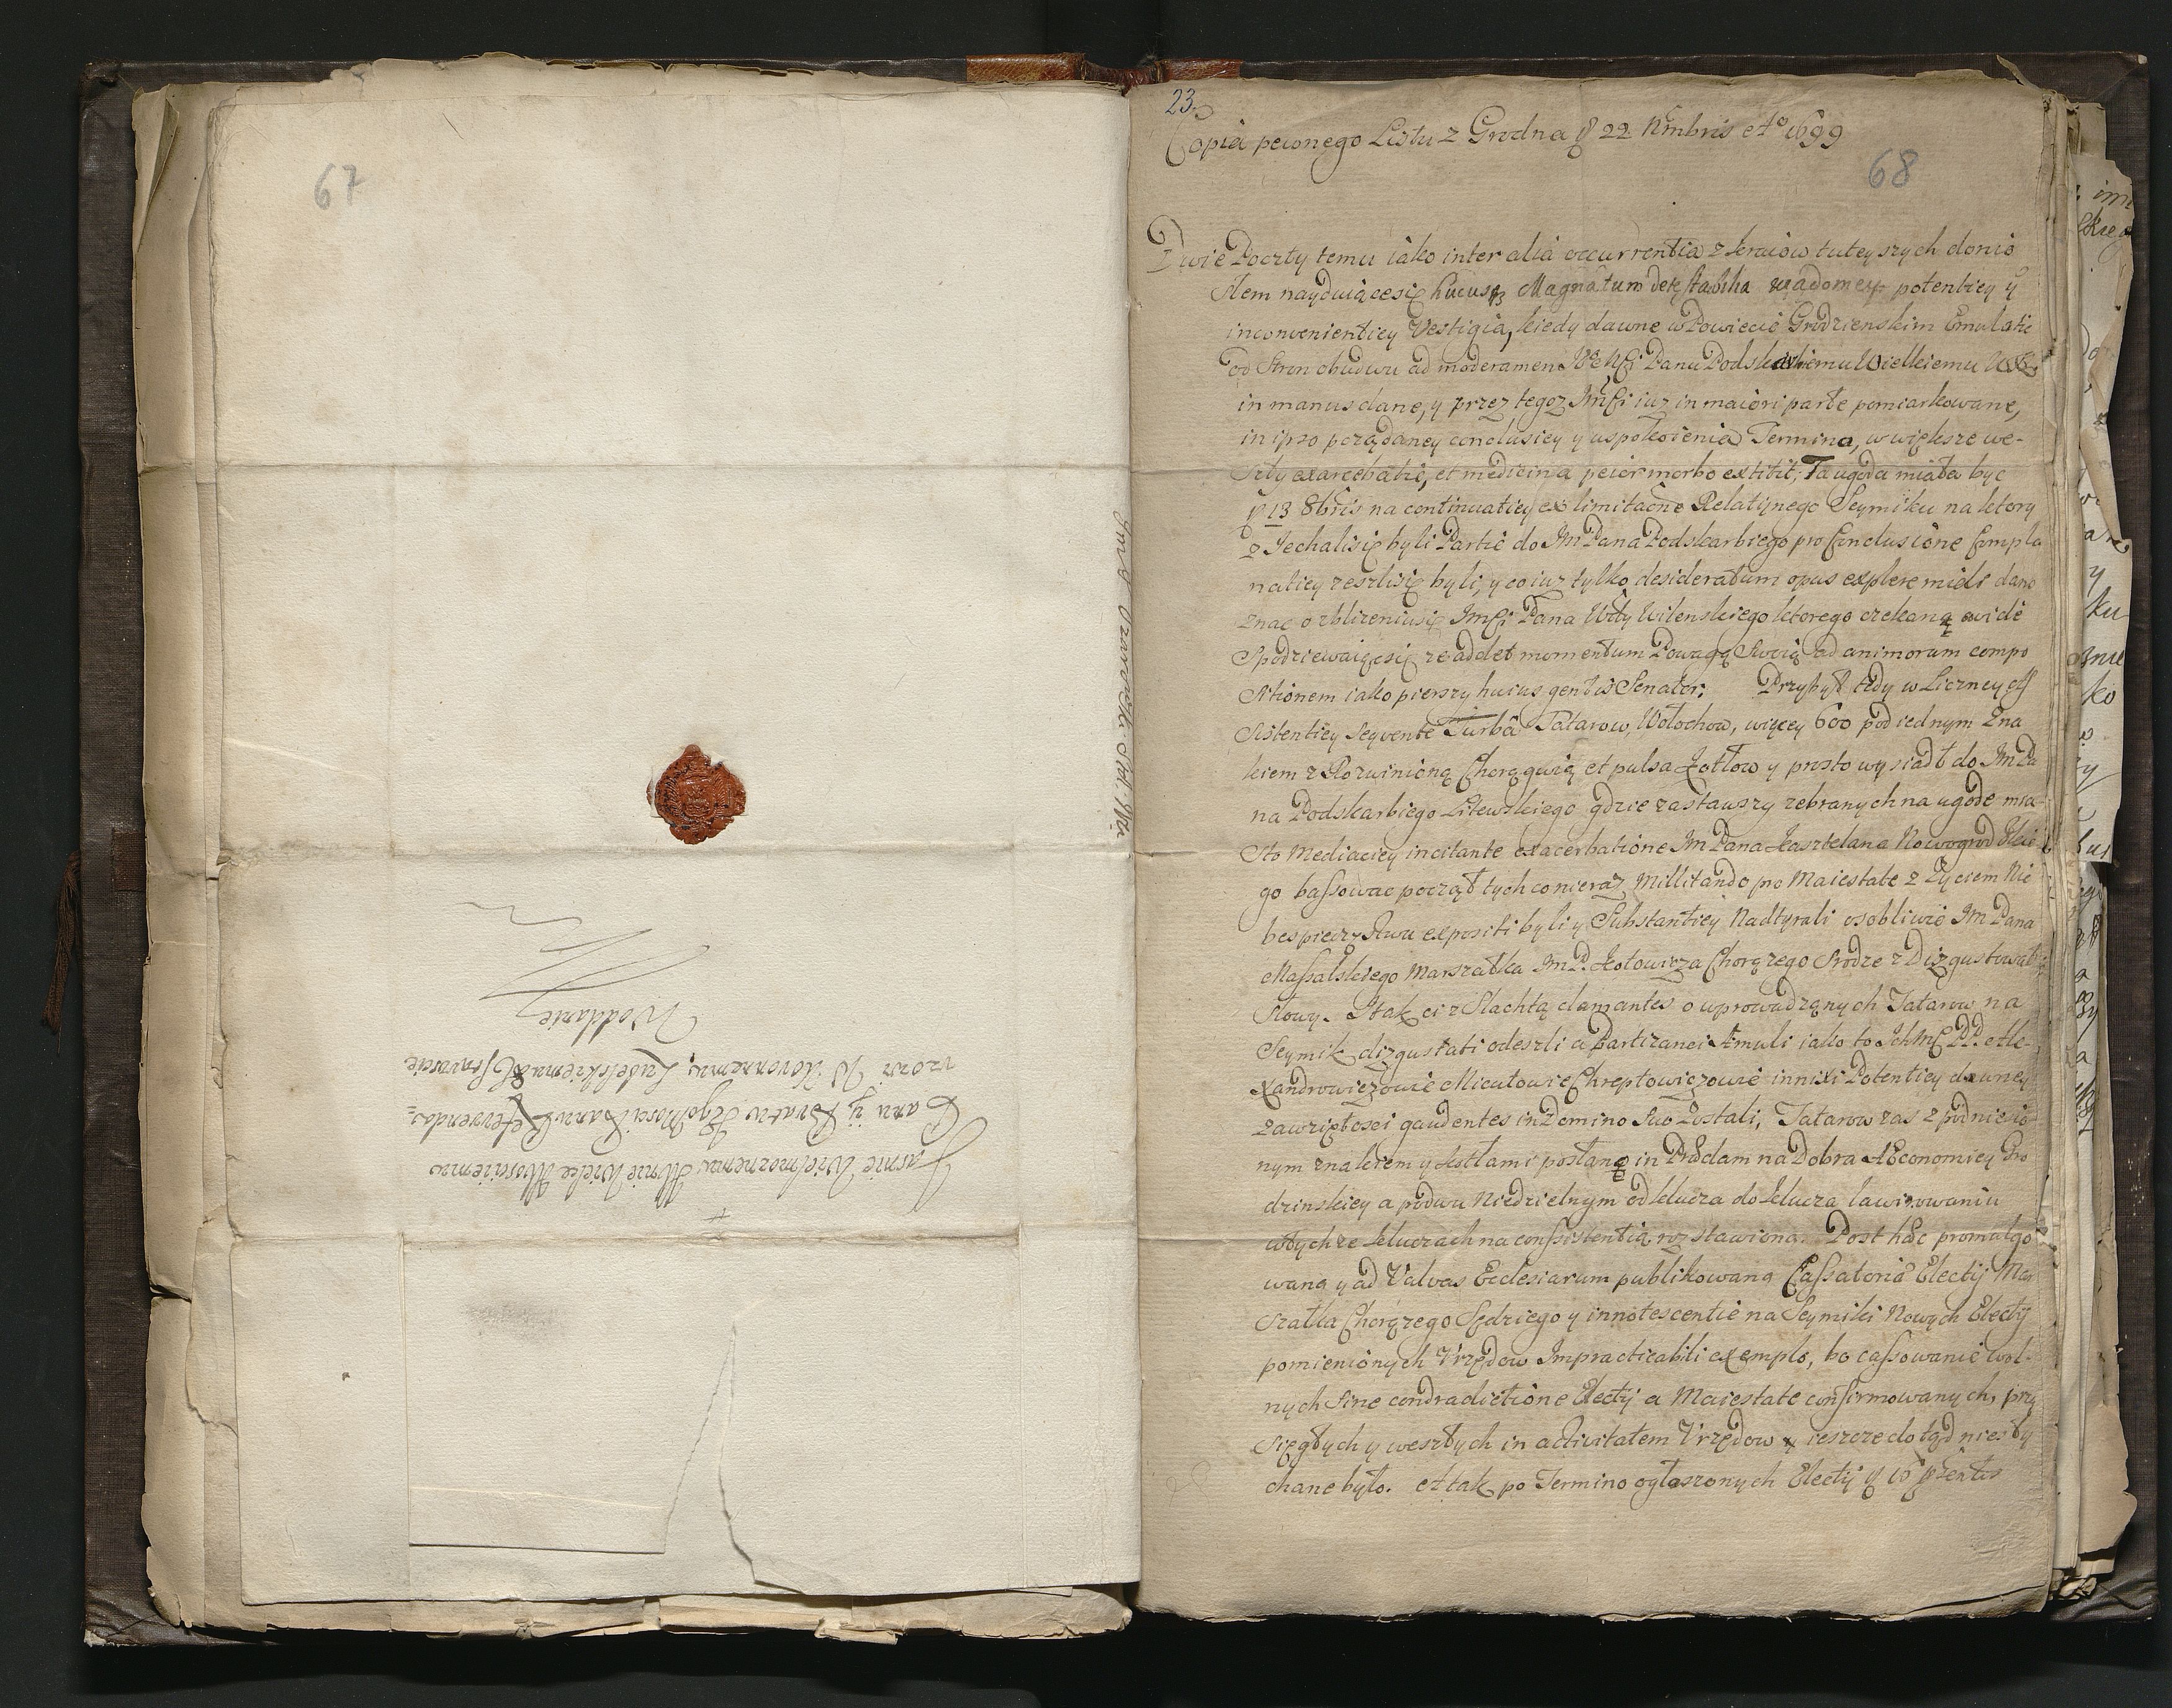 67
Jasnie Wielmoznemu Mnie Wielce Mosciemu
Panu y Bratu Jego Mosci Panu Referenda-
rzowi W Koronnemu,
Woddanie
23.
Copia pewnego Listu z Grodna d 22 Nmbris Ao 1699
68
Dwie Poczty temu iako inter alia occurrentia z kraiow tuteyszych donio
słem nayduiącesię hucusq Magnatum detestabilia wiadomey potentiey y
inconvenientiey Vestigia, kiedy dawne w Powiecie Grodzienskim Emulatie
od Stron obudwu ad moderamen Panu Podskarbiemu Wielkiemu
in manus dane, y przez tegoz ImCi iuz in maiori parte pomiarkowane,
in ipso porządaney conclusiey y uspokoienia Termino, w większe we-
szły exarcebatie, et medicina peior morbo extitit, Ta ugoda miała być
d 13 8bris na continuatiey ex limitaone Relatijnego Seymiku na ktory
z Jechalisię byli Partie do Im Pana Podskarbiego pro Conclusione Compla
natiey zeszlisię byli, y co iuz tylko desideratum opus explere mieli dano
znac o zblizeniusię ImCi Pana Wdy Wilenskiego ktorego czekaną
Spodziewaiącsię ze addet momentum Powagą Swoią ad animorum compo
sitionem iako pierszy huius gentis Senator; Przybył tedy w Liczney As
sistentiey seqvente Turbâ Tatarow, Wołochow, więcey 600 pod iednym Zna
kiem z Rozwinioną Chorągwią et pulsa Kotłow y prosto wysiadł do Im Pa
na Podskarbiego Litewskiego gdzie zastawszy zebranych na ugode mia
sto Mediaciey incitante exacerbatione Im Pana Kasztelana Nowogrodzkie
go bassowac począł tych co nieraz Millitando pro Maiestate z Zyciem Nie
bespieczystwu expositi byli y Substantiey Nadtyrali osobliwie Im Pana
Massalskiego Marszałka Im P. Kotowicza Chorązego srodze zDizgustował
słowy. Itak ci z Slachtą clamantes o uprowadzanych Tatarow na
Seymik dizgustati odeszli a Partizanci Æmuli iako to Ich MC PP. Ale-
xandrowiczowie Micutowie Chreptowiczowie innixi Potentiey dawney
zawziętosci gaudentes in Domino suo Zostali, Tatarow zas z podniesio
nym znakiem y kotłami posłano in Prædam na Dobra Æconomiey Gro
dzinskiey a po dwu Niedzielnym od klucza do klucza lawirowaniu
wtychze kluczach na conssistentią rozstawiono. Post hæc promulgo
wana y ad Valvas Ecclesiarum publikowana Cassatoria Electij Mar
szałka Chorązego Sędziego y innotescentie na Seymiki Nowych Electij
pomienionych Vrzędow Impracticabili exemplo, bo cassowanie wol-
nych sine condradictione Electij a Maiestate confirmowanych, przy
sięgłych y weszłych in activitatem Vrzędow ieszcze do tąd niesły
chane było. et tak po Termino ogłoszonych Electij d